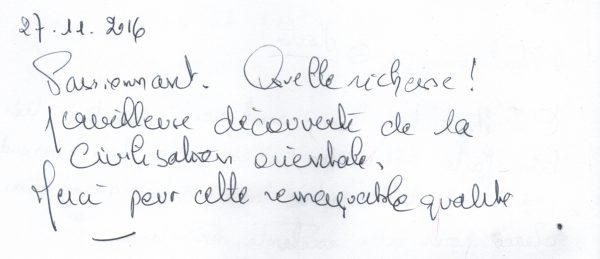 27.11.2016
Passionnant. Quelle richesse !
Merveilleuse découverte de la
civilisation orientale,
Merci pour cette remarquable qualité